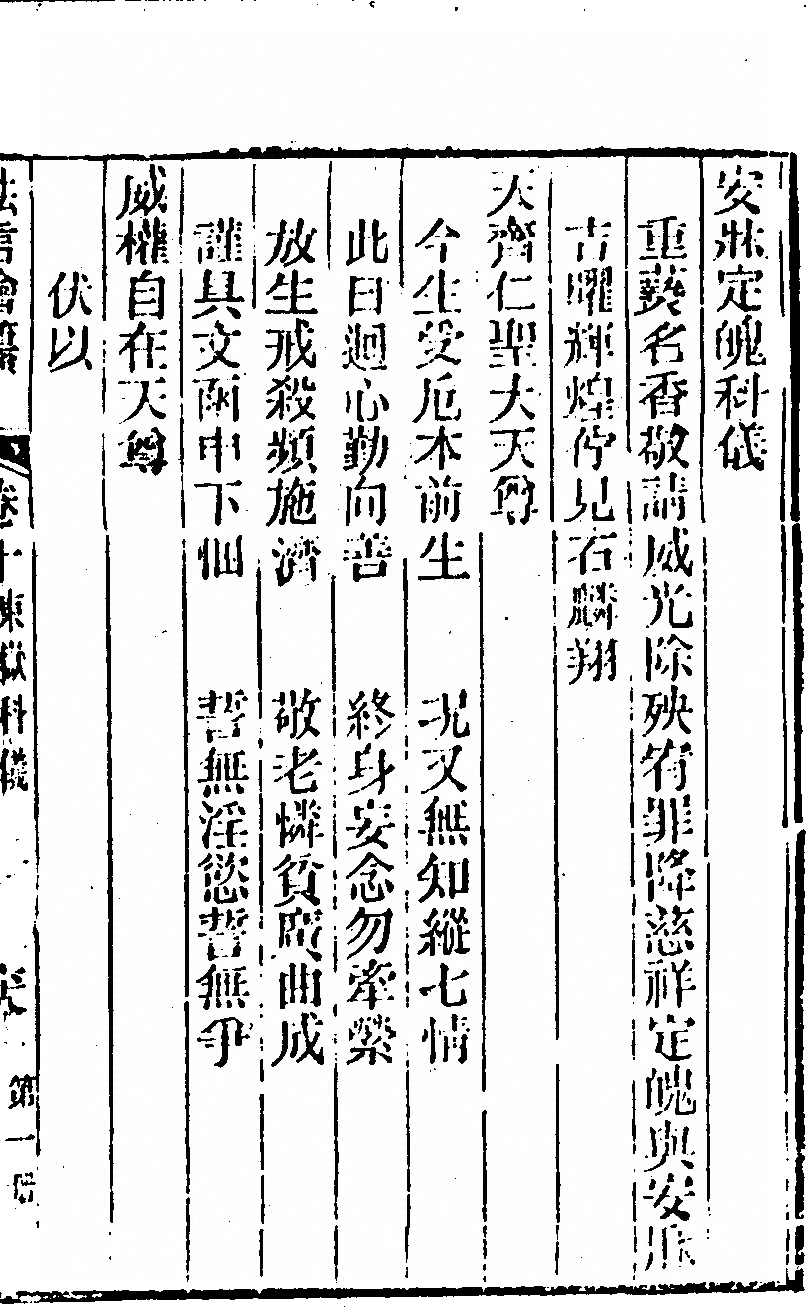 安牀定魄科儀
重爇名香敬請威光除殃宥罪降慈祥定魄與安牀
吉曜輝煌佇見石麟翔
天齊仁聖大天尊
今生受厄本前生　現又無知縱七情
此日迴心勤向善　終身妄念勿牽縈
放生戒殺頻施濟　敬老憐貧廣曲成
謹具文函申下悃　誓無淫慾誓無爭
威權自在天尊
伏以
法言會纂　卷十東嶽科儀　第一冊